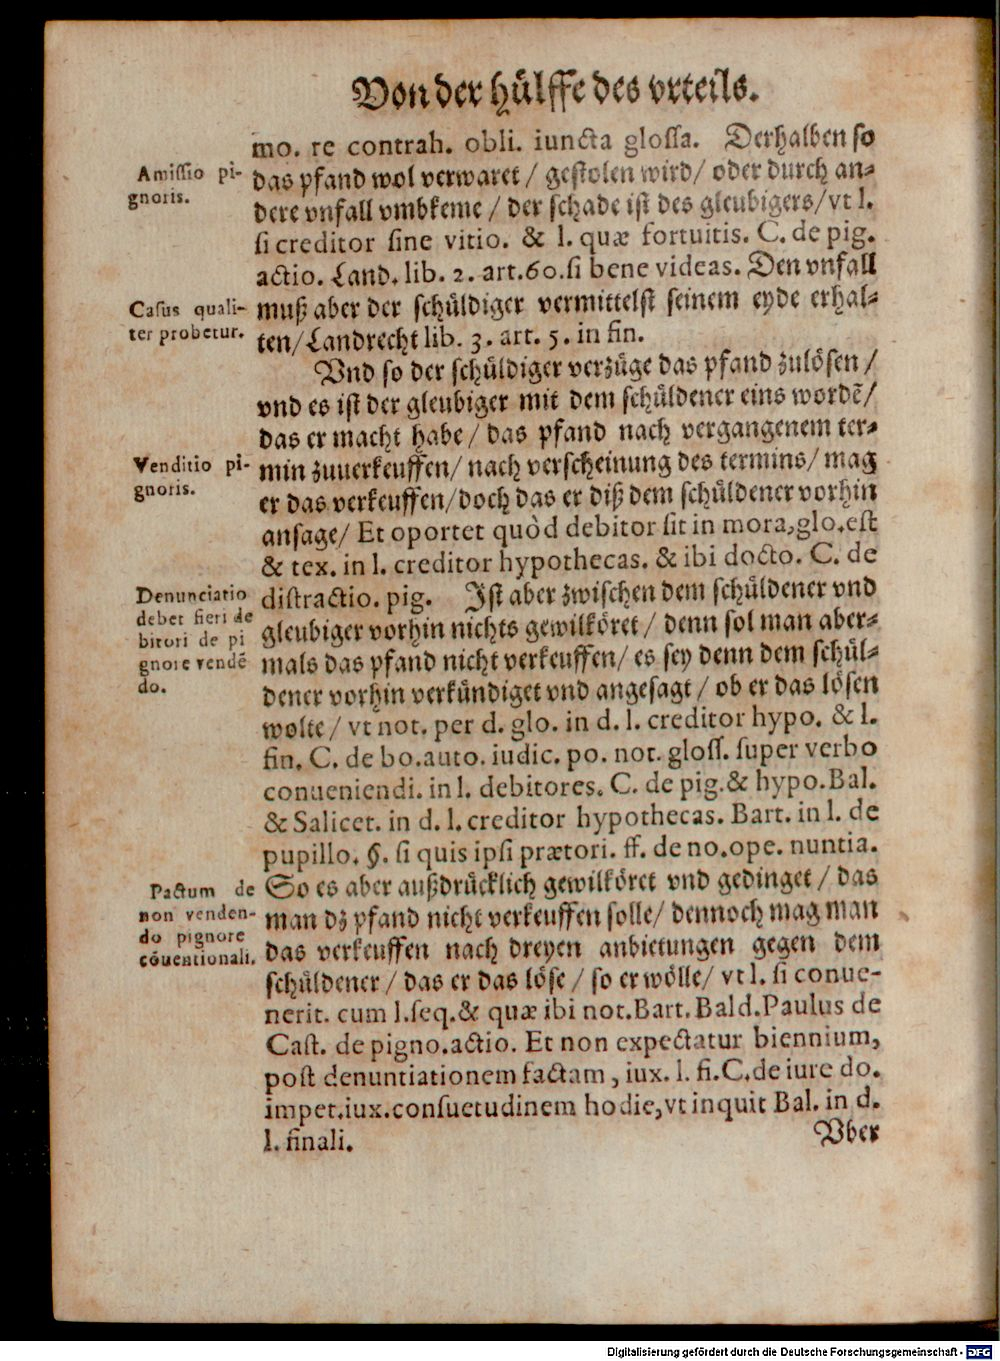 Von der hülffe des vrteils.
mo. re contrah. obli. iuncta glossa. Derhalben so
Amissio pi-
gnoris.
das pfand wol verwaret / gestolen wird / oder durch an-
dere vnfall vmbkeme / der schade ist des gleubigers / vt l.
si creditor sine vitio. & l. quæ fortuitis. C. de pig.
actio. Land. lib. 2. art. 60. si bene videas. Den vnfall
Casus quali-
ter probetur.
muß aber der schüldiger vermittelst seinem eyde erhal-
ten / Landrecht lib. 3. art. 5. in fin.
Vnd so der schüldiger verzüge das pfand zulösen /
vnd es ist der gleubiger mit dem schüldener eins wordē /
das er macht habe / das pfand nach vergangenem ter-
Venditio pi-
gnoris.
min zuuerkeuffen / nach verscheinung des termins / mag
er das verkeuffen / doch das er diß dem schüldener vorhin
ansage / Et oportet quòd debitor sit in mora, glo. est
& tex. in l. creditor hypothecas. & ibi docto. C. de
Denunciatio
debet fieri de
bitori de pi
gnore vendē
do.
distractio. pig. Ist aber zwischen dem schüldener vnd
gleubiger vorhin nichts gewilköret / denn sol man aber-
mals das pfand nicht verkeuffen / es sey denn dem schül-
dener vorhin verkündiget vnd angesagt / ob er das lösen
wolte / vt not. per d. glo. in d. l. creditor hypo. & l.
fin. C. de bo. auto. iudic. po. not. gloss. super verbo
conueniendi. in l. debitores. C. de pig. & hypo. Bal.
& Salicet. in d. l. creditor hypothecas. Bart. in l. de
pupillo. §. si quis ipsi prætori. ff. de no. ope. nuntia.
Pactum de
non venden-
do pignore
cōuentionali.
So es aber außdrücklich gewilköret vnd gedinget / das
man dz pfand nicht verkeuffen solle / dennoch mag man
das verkeuffen nach dreyen anbietungen gegen dem
schüldener / das er das löse / so er wölle / vt l. si conue-
nerit. cum l. seq. & quæ ibi not. Bart. Bald. Paulus de
Cast. de pigno. actio. Et non expectatur biennium,
post denuntiationem factam, iux. l. fi. C. de iure do.
impet. iux. consuetudinem hodie, vt inquit Bal. in d.
l. finali.
Vber
Digitalisierung gefördert durch die Deutsche Forschungsgemeinschaft - DFG